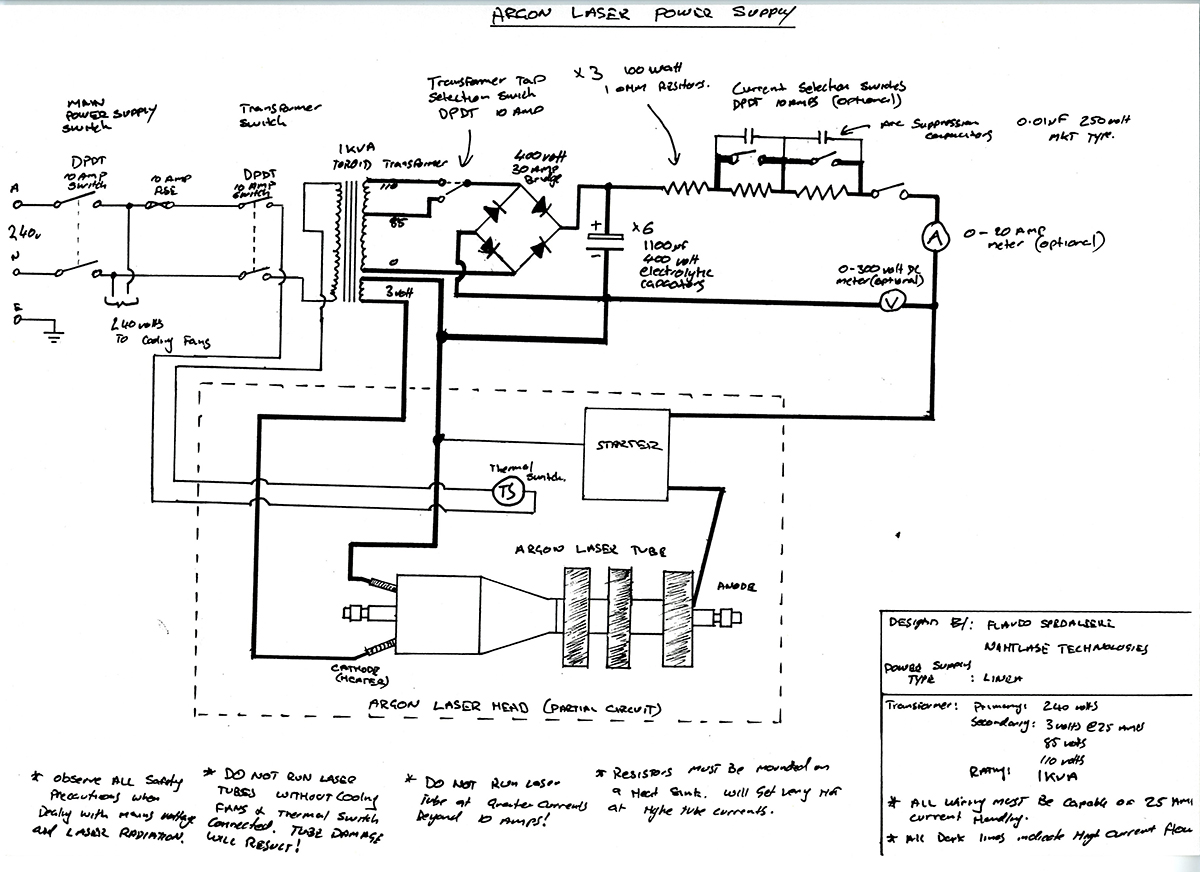 ARGON LASER POWER SUPPLY
MAIN
POWER SUPPLY
SWITCH
DPDT
10 AMP
Switch
Transformer
Switch
DPDT
10 AMP
Switch
10 AMP
A
240v
N
E
240 volts
To Cooling Fans
1KVA
TOROID Transformer
110
85
0
3 volt
Transformer Tap
Selection Switch
DPDT 10 AMP
400 volt
30 AMP
Bridge
x 3 100 watt
1 OHM Resistors.
Current Selection Switches
DPDT 10 AMPS (optional)
Arc Suppression
capacitors
0.01uF 250 volt
MKT Type.
+
-
x 6
1100uf
400 volt
electrolytic
capacitors
A
0-20 AMP
meter (optional)
0-300 volt DC
meter (optional)
V
STARTER
Thermal
Switch.
TS
ARGON LASER TUBE
ANODE
CATHODE
(HEATER)
ARGON LASER HEAD (PARTIAL CIRCUIT)
DESIGN BY:
NAHTLASE TECHNOLOGIES
POWER SUPPLY
TYPE :
Transformer: Primary: 240 volts
Secondary: 3 volts @ 25 AMPS
85 volts
110 volts
Rating: 1KVA
* ALL wiring MUST Be Capable of 25 AM
current Handling.
* All Dark lines indicate High Current Flow
* Observe ALL Safety
Precautions when
Dealing with mains voltage
and LASER RADIATION.
* DO NOT RUN LASER
TUBES WITHOUT COOLING
FANS & Thermal Switch
Connected. TUBE DAMAGE
WILL RESULT!
* DO NOT Run Laser
Tube at Greater Currents
Beyond 10 AMPS!
* Resistors Must Be Mounted on
a Heat Sink. Will Get Very Hot
at tube currents.